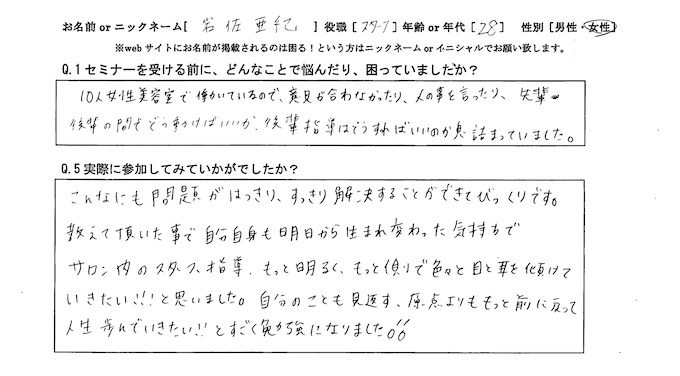 お名前 or ニックネーム[ 岩佐亜紀 ] 役職[スタッフ]年齢 or 年代[28] 性別[男性・女性]
※web サイトにお名前が掲載されるのは困る！という方はニックネーム or イニシャルでお願い致します。
Q.1 セミナーを受ける前に、どんなことで悩んだり、困っていましたか？
10人女性美容室で働いているので、意見が合わなかったり、人の事を言ったり、先輩
後輩の間でどう動けばいいか、後輩指導はどうすればいいのか息詰まっていました。
Q.5 実際に参加してみていかがでしたか？
こんなにも問題がはっきり、すっきり解決することができてびっくりです。
教えて頂いた事で自分自身も明日から生まれ変わった気持ちで
サロン内のスタッフ指導、もっと明るく、もっと側りで色々と目と耳を傾けて
いきたい!!!と思いました。自分のことも見返す、原点よりももっと前に戻って
人生歩んでいきたい!!とすごく勉強になりました。